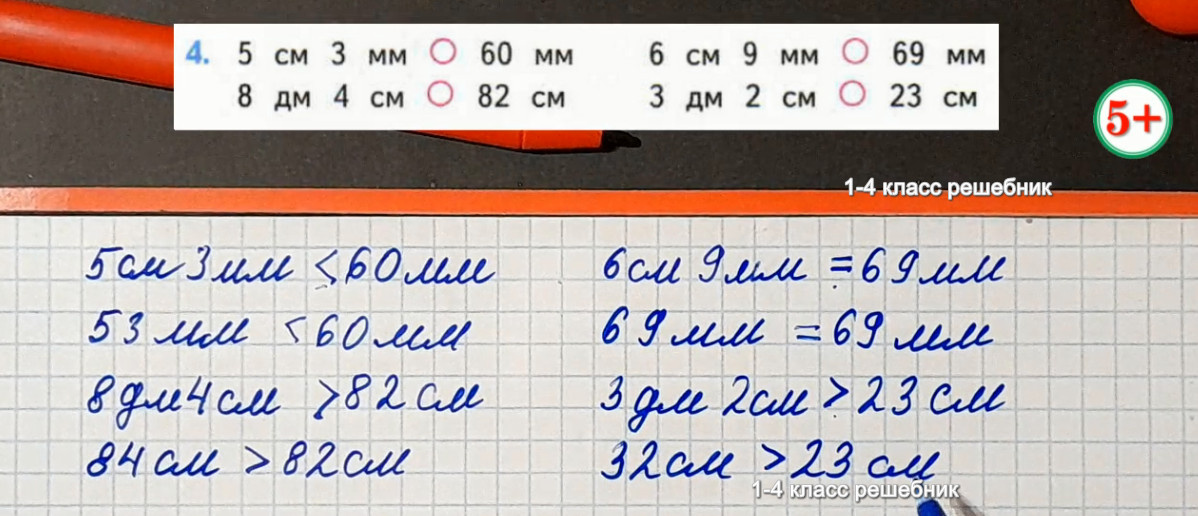 4. 5 см 3 мм ○ 60 мм 6 см 9 мм ○ 69 мм
8 дм 4 см ○ 82 см 3 дм 2 см ○ 23 см
5+
1-4 класс решебник
5см 3мм < 60мм 6см 9мм = 69мм
53мм < 60мм 69мм = 69мм
8дм4см > 82см 3дм 2см > 23см
84см > 82см 32см > 23см
1-4 класс решебник